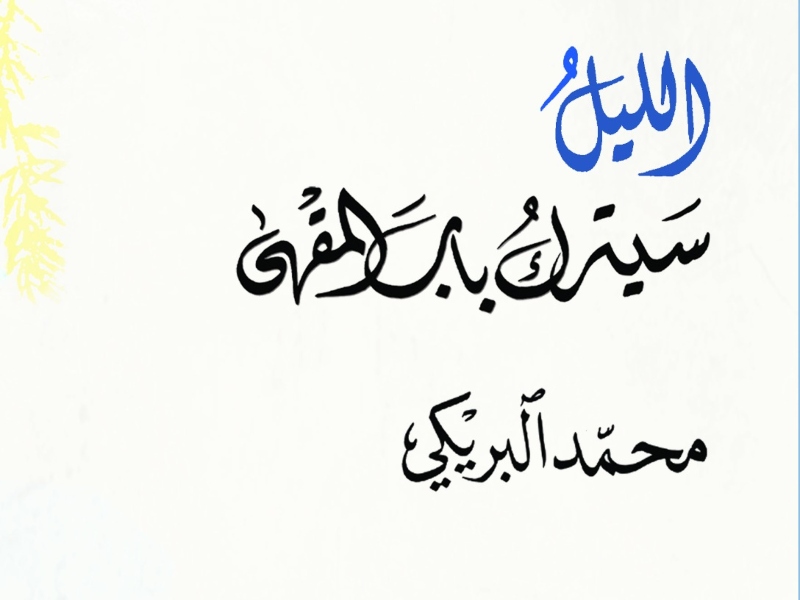 الليلُ
سَيتركُ بابَ المقهىٰ
محمّد ٱلبريْكي